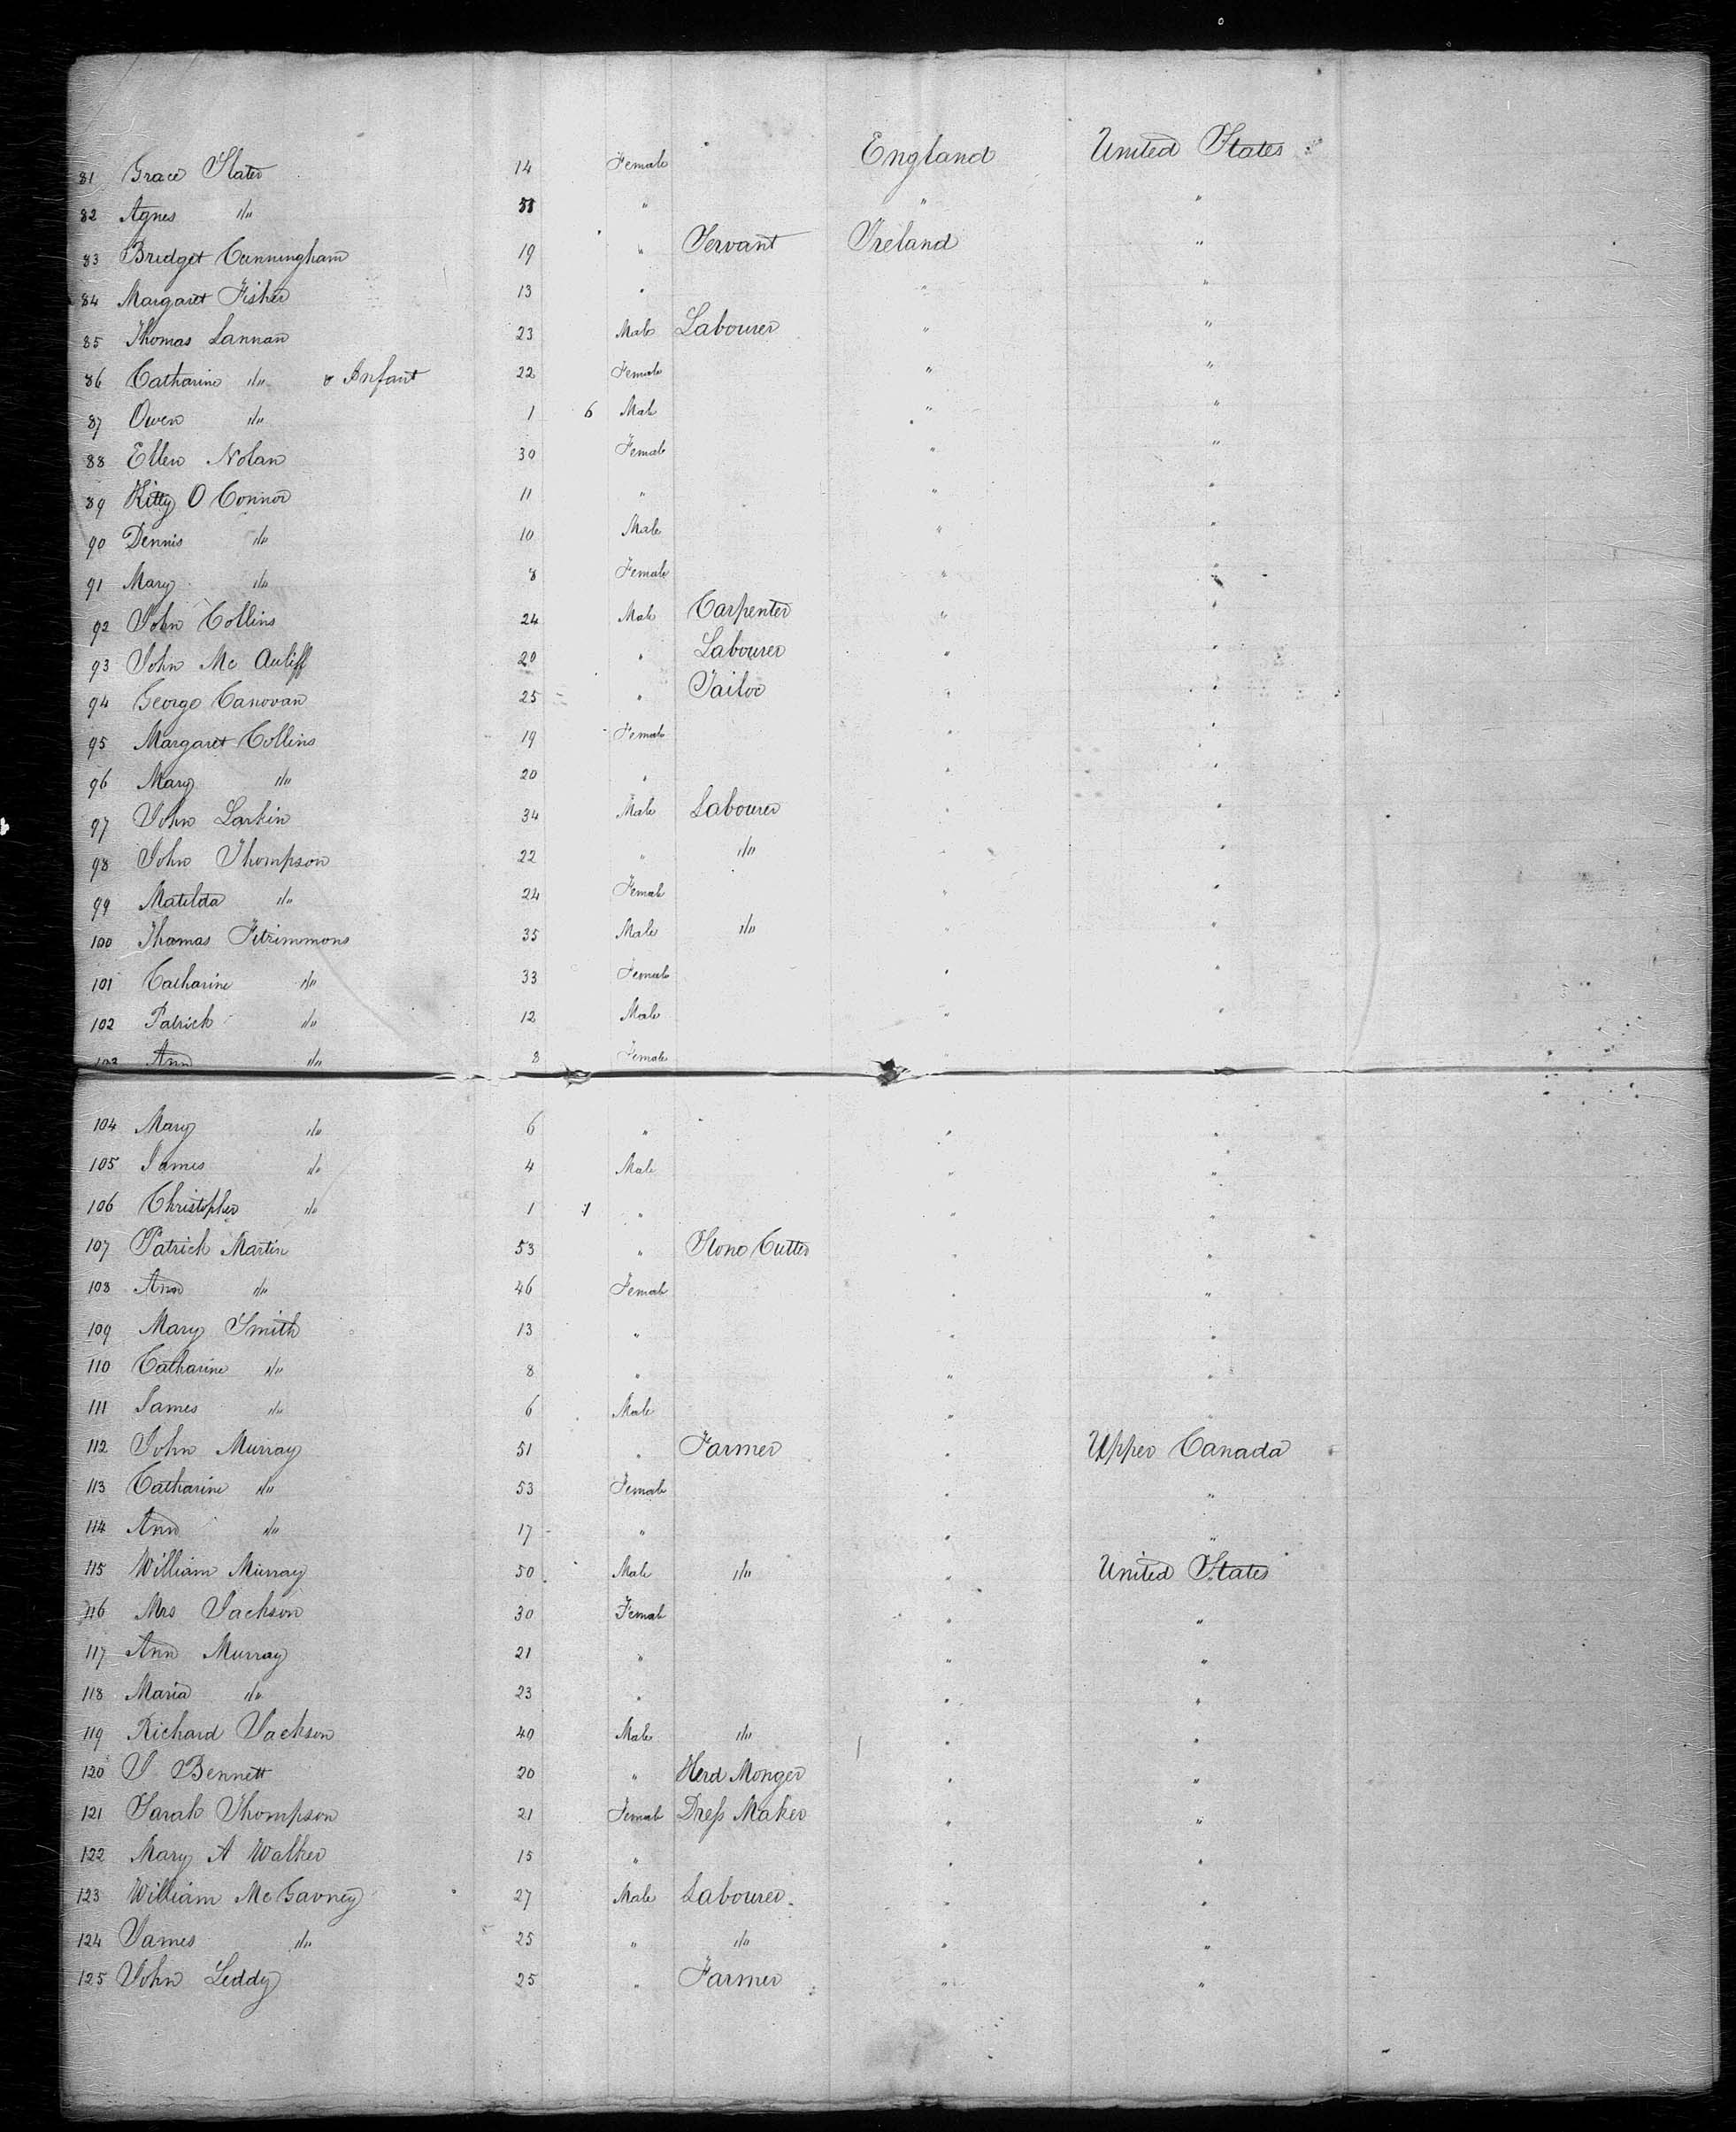 81 Grace Slater 14 Female England United States
82 Agnes do " " "
83 Bridget Cunningham 19 " Servant Ireland "
84 Margaret Fisher 13 " " "
85 Thomas Lannan 23 Male Labourer " "
86 Catharine do & Infant 22 Female " "
87 Owen do 1 6 Male " "
88 Ellen Nolan 30 Female " "
89 Kitty O Connor 11 " " "
90 Dennis do 10 Male " "
91 Mary do 8 Female " "
92 John Collins 24 Male Carpenter " "
93 John Mc Auliff 20 " Labourer " "
94 George Canovan 25 " Tailor " "
95 Margaret Collins 19 Female " "
96 Mary do 20 " " "
97 John Larkin 34 Male Labourer " "
98 John Thompson 22 " do " "
99 Matilda do 24 Female " "
100 Thomas Fitzimmons 35 Male do " "
101 Catharine do 33 Female " "
102 Patrick do 12 Male " "
103 Ann do 8 Female "
104 Mary do 6 " " "
105 James do 4 Male " "
106 Christopher do 1 1 " " "
107 Patrick Martin 53 " Stone Cutter " "
108 Ann do 46 Female " "
109 Mary Smith 13 " " "
110 Catharine do 8 " " "
111 James do 6 Male " "
112 John Murray 51 " Farmer " Upper Canada
113 Catharine do 53 Female " "
114 Ann do 17 " " "
115 William Murray 50 Male do " United States
116 Mrs Jackson 30 Female " "
117 Ann Murray 21 " " "
118 Maria do 23 " " "
119 Richard Jackson 40 Male do " "
120 J Bennett 20 " Herd Monger " "
121 Sarah Thompson 21 Female Dress Maker " "
122 Mary A Walker 15 " " "
123 William Mc Gavney 27 Male Labourer " "
124 James do 25 " do " "
125 John Leddy 25 " Farmer " "